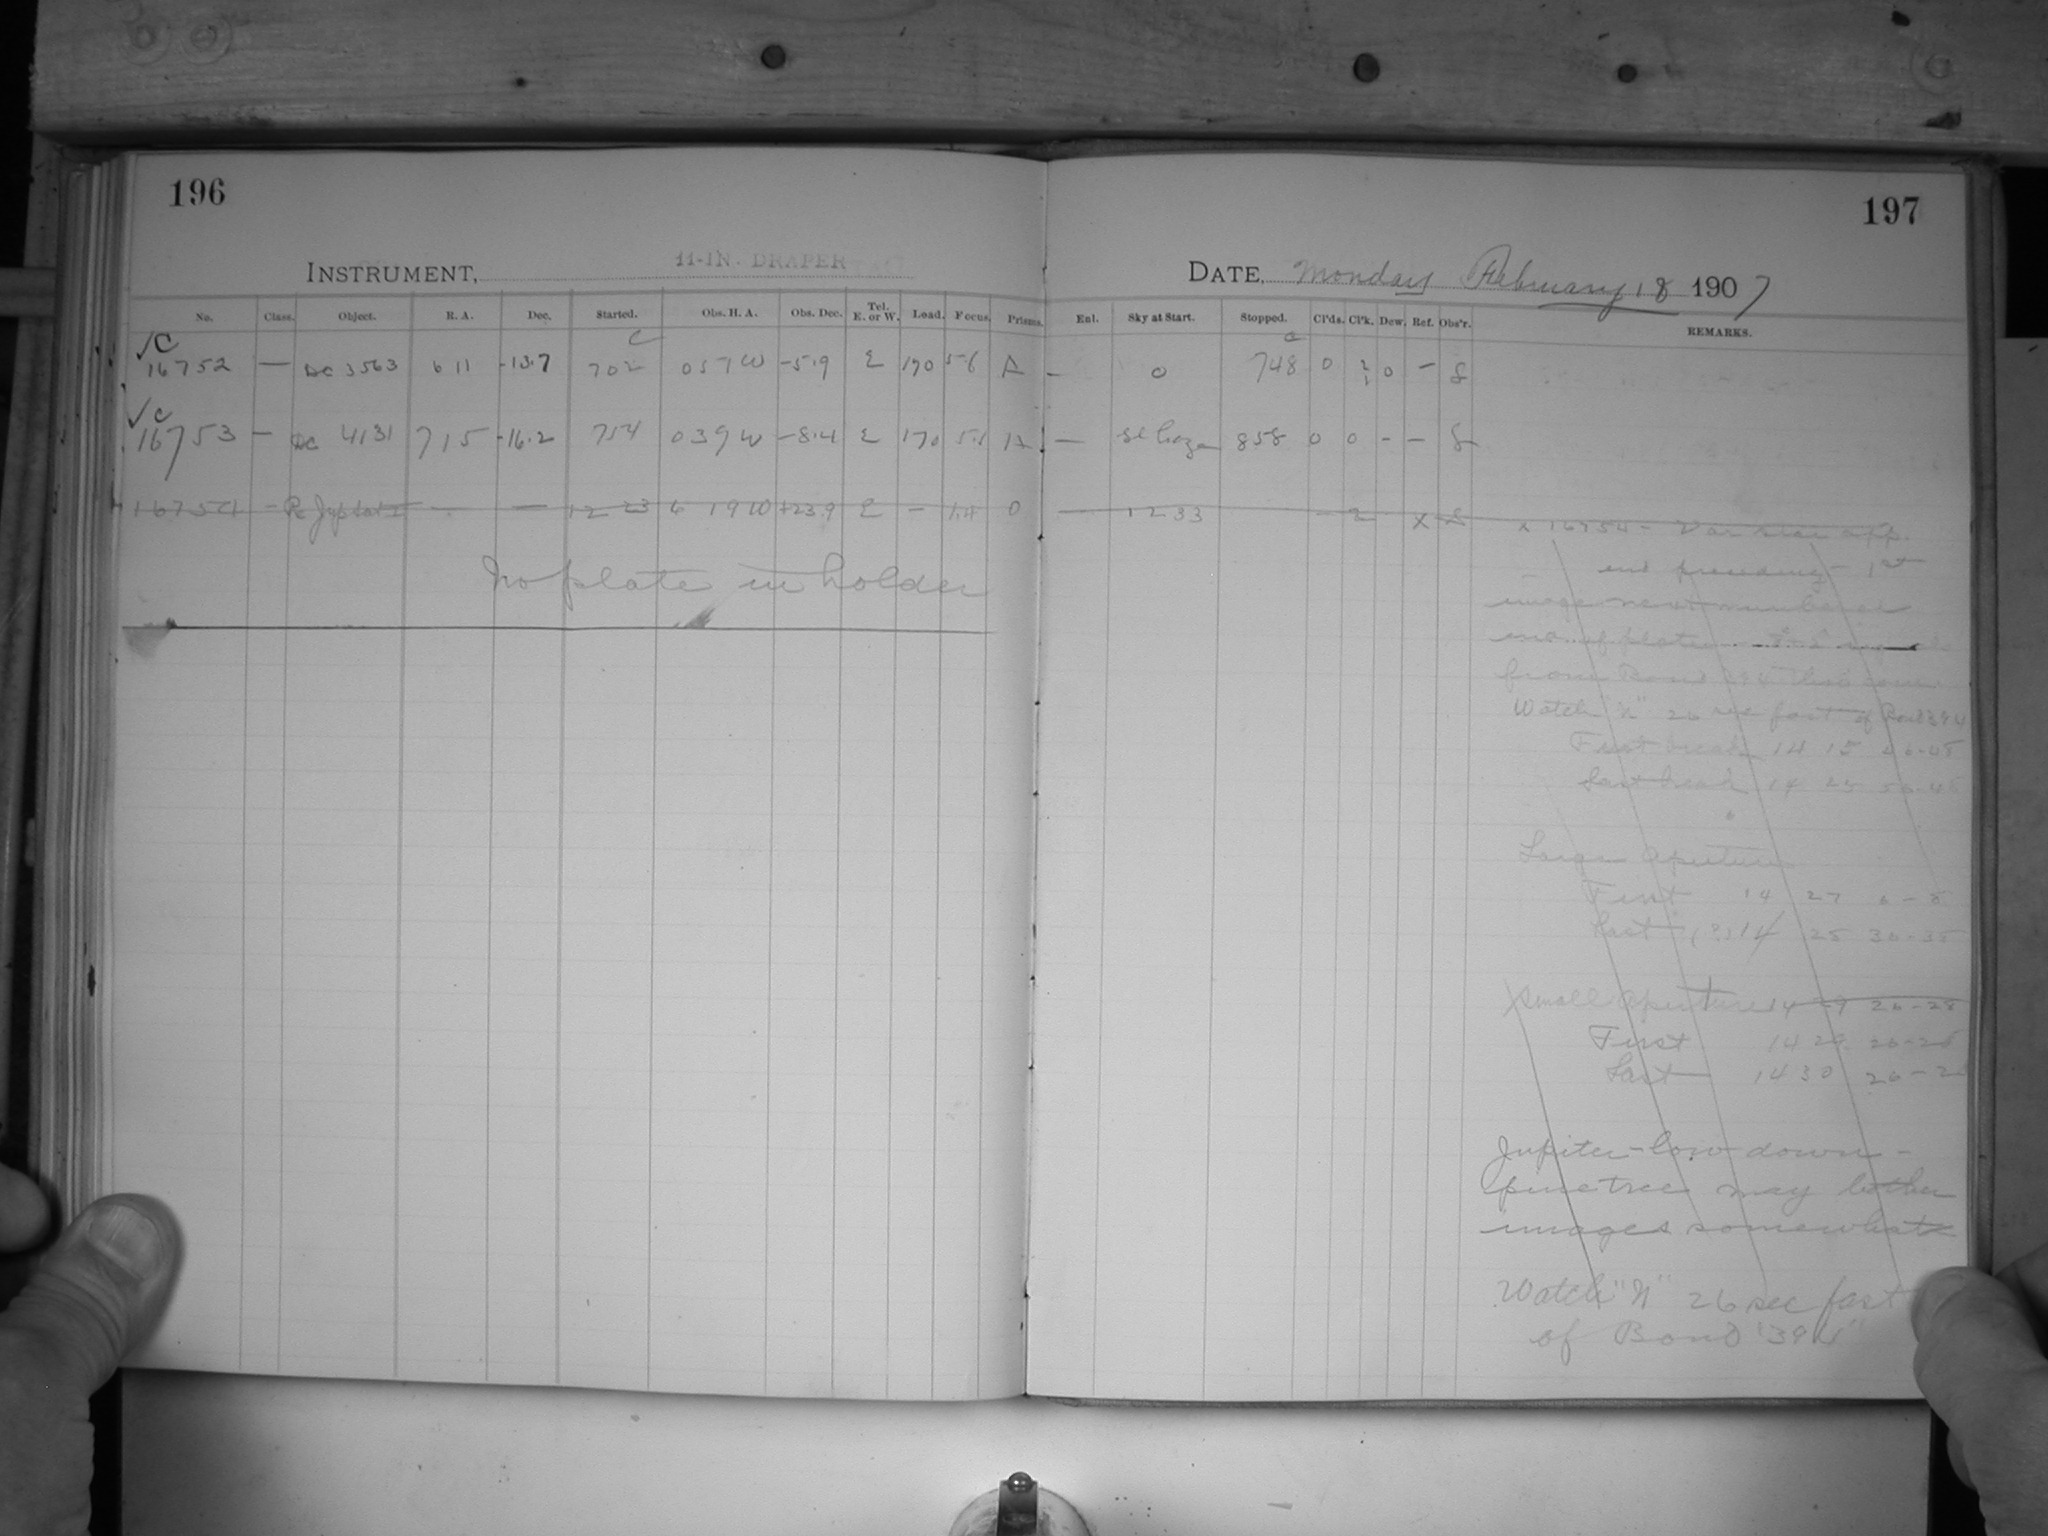 196
197
INSTRUMENT, 11-IN. DRAPER
DATE, Monday February 18 1907
No. Class. Object. R. A. Dec. Started. Obs. H. A. Obs. Dec. Tel. E. or W. Load. Focus. Prisms.
Enl. Sky at Start. Stopped. Cl'ds. Cl'k. Dew. Ref. Obs'r. REMARKS.
√C C C
16752 — DC 3563 6 11 -13.7 702 0 57 W -5.9 E 170 5.6 A — 0 748 0 0 — S
√C
16753 — DC 4131 7 15 -16.2 754 0 39 W -8.4 E 170 A — Sl haze 858 0 0 - - S
16754 - — — 12 23 6 19 W +23.9 E - 1.4 0 — 12 33 - 2 X S
No plate in holder
x 16754 - Var star app.
end preceding - 1st
image next number at
end of plate
from Bond 394
Watch "N" 26 sec fast of Bond 394
First break 14 15
Last break 14 25
Large aperture
First 14 27
Last (?) 14 25 30-35
Small aperture 14 29 26-28
First 14 29 26-28
Last 14 30 26-
Jupiter - low down -
pine tree may bother
images somewhat
Watch "N" 26 sec fast
of Bond "394"